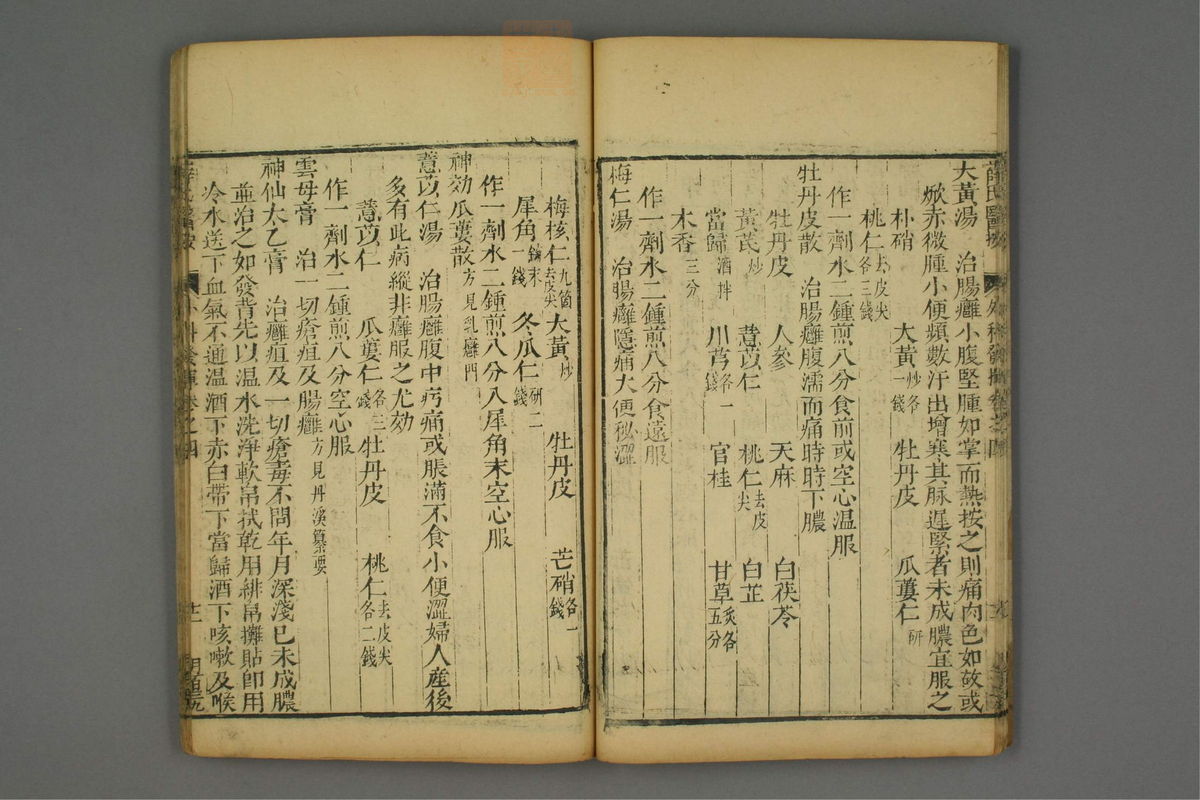 大黃湯　治腸癰小腹堅腫如掌而熱按之則痛肉色如故或
焮赤微腫小便頻數汗出增寒其脉遲緊者未成膿宜服之
朴硝　大黃炒各一錢　牡丹皮　瓜蔞仁研
桃仁去皮尖各三錢
作一劑水二鍾煎八分食前或空心温服
牡丹皮散　治腸癰腹濡而痛時時下膿
牡丹皮　人參　天麻　白茯苓
黃芪炒　薏苡仁　桃仁去皮尖　白芷
當歸酒拌　川芎各一錢　官桂　甘草炙各五分
木香三分
作一劑水二鍾煎八分食遠服
梅仁湯　治腸癰隱痛大便秘澀
梅核仁九箇去皮尖　大黃炒　牡丹皮　芒硝各一錢
犀角鎊末一錢　冬瓜仁研二錢
作一劑水二鍾煎八分入犀角末空心服
神効瓜蔞散方見乳癰門
薏苡仁湯　治腸癰腹中㽲痛或脹滿不食小便澀婦人産後
多有此病縱非癰服之尤効
薏苡仁　瓜蔞仁各三錢　牡丹皮　桃仁去皮尖各二錢
作一劑水二鍾煎八分空心服
雲母膏　治一切瘡疽及腸癰方見丹溪纂要
神仙太乙膏　治癰疽及一切瘡毒不問年月深淺已未成膿
並治之如發背先以温水洗淨軟帛拭乾用緋帛攤貼卽用
冷水送下血氣不通温酒下赤白帶下當歸酒下咳嗽及喉